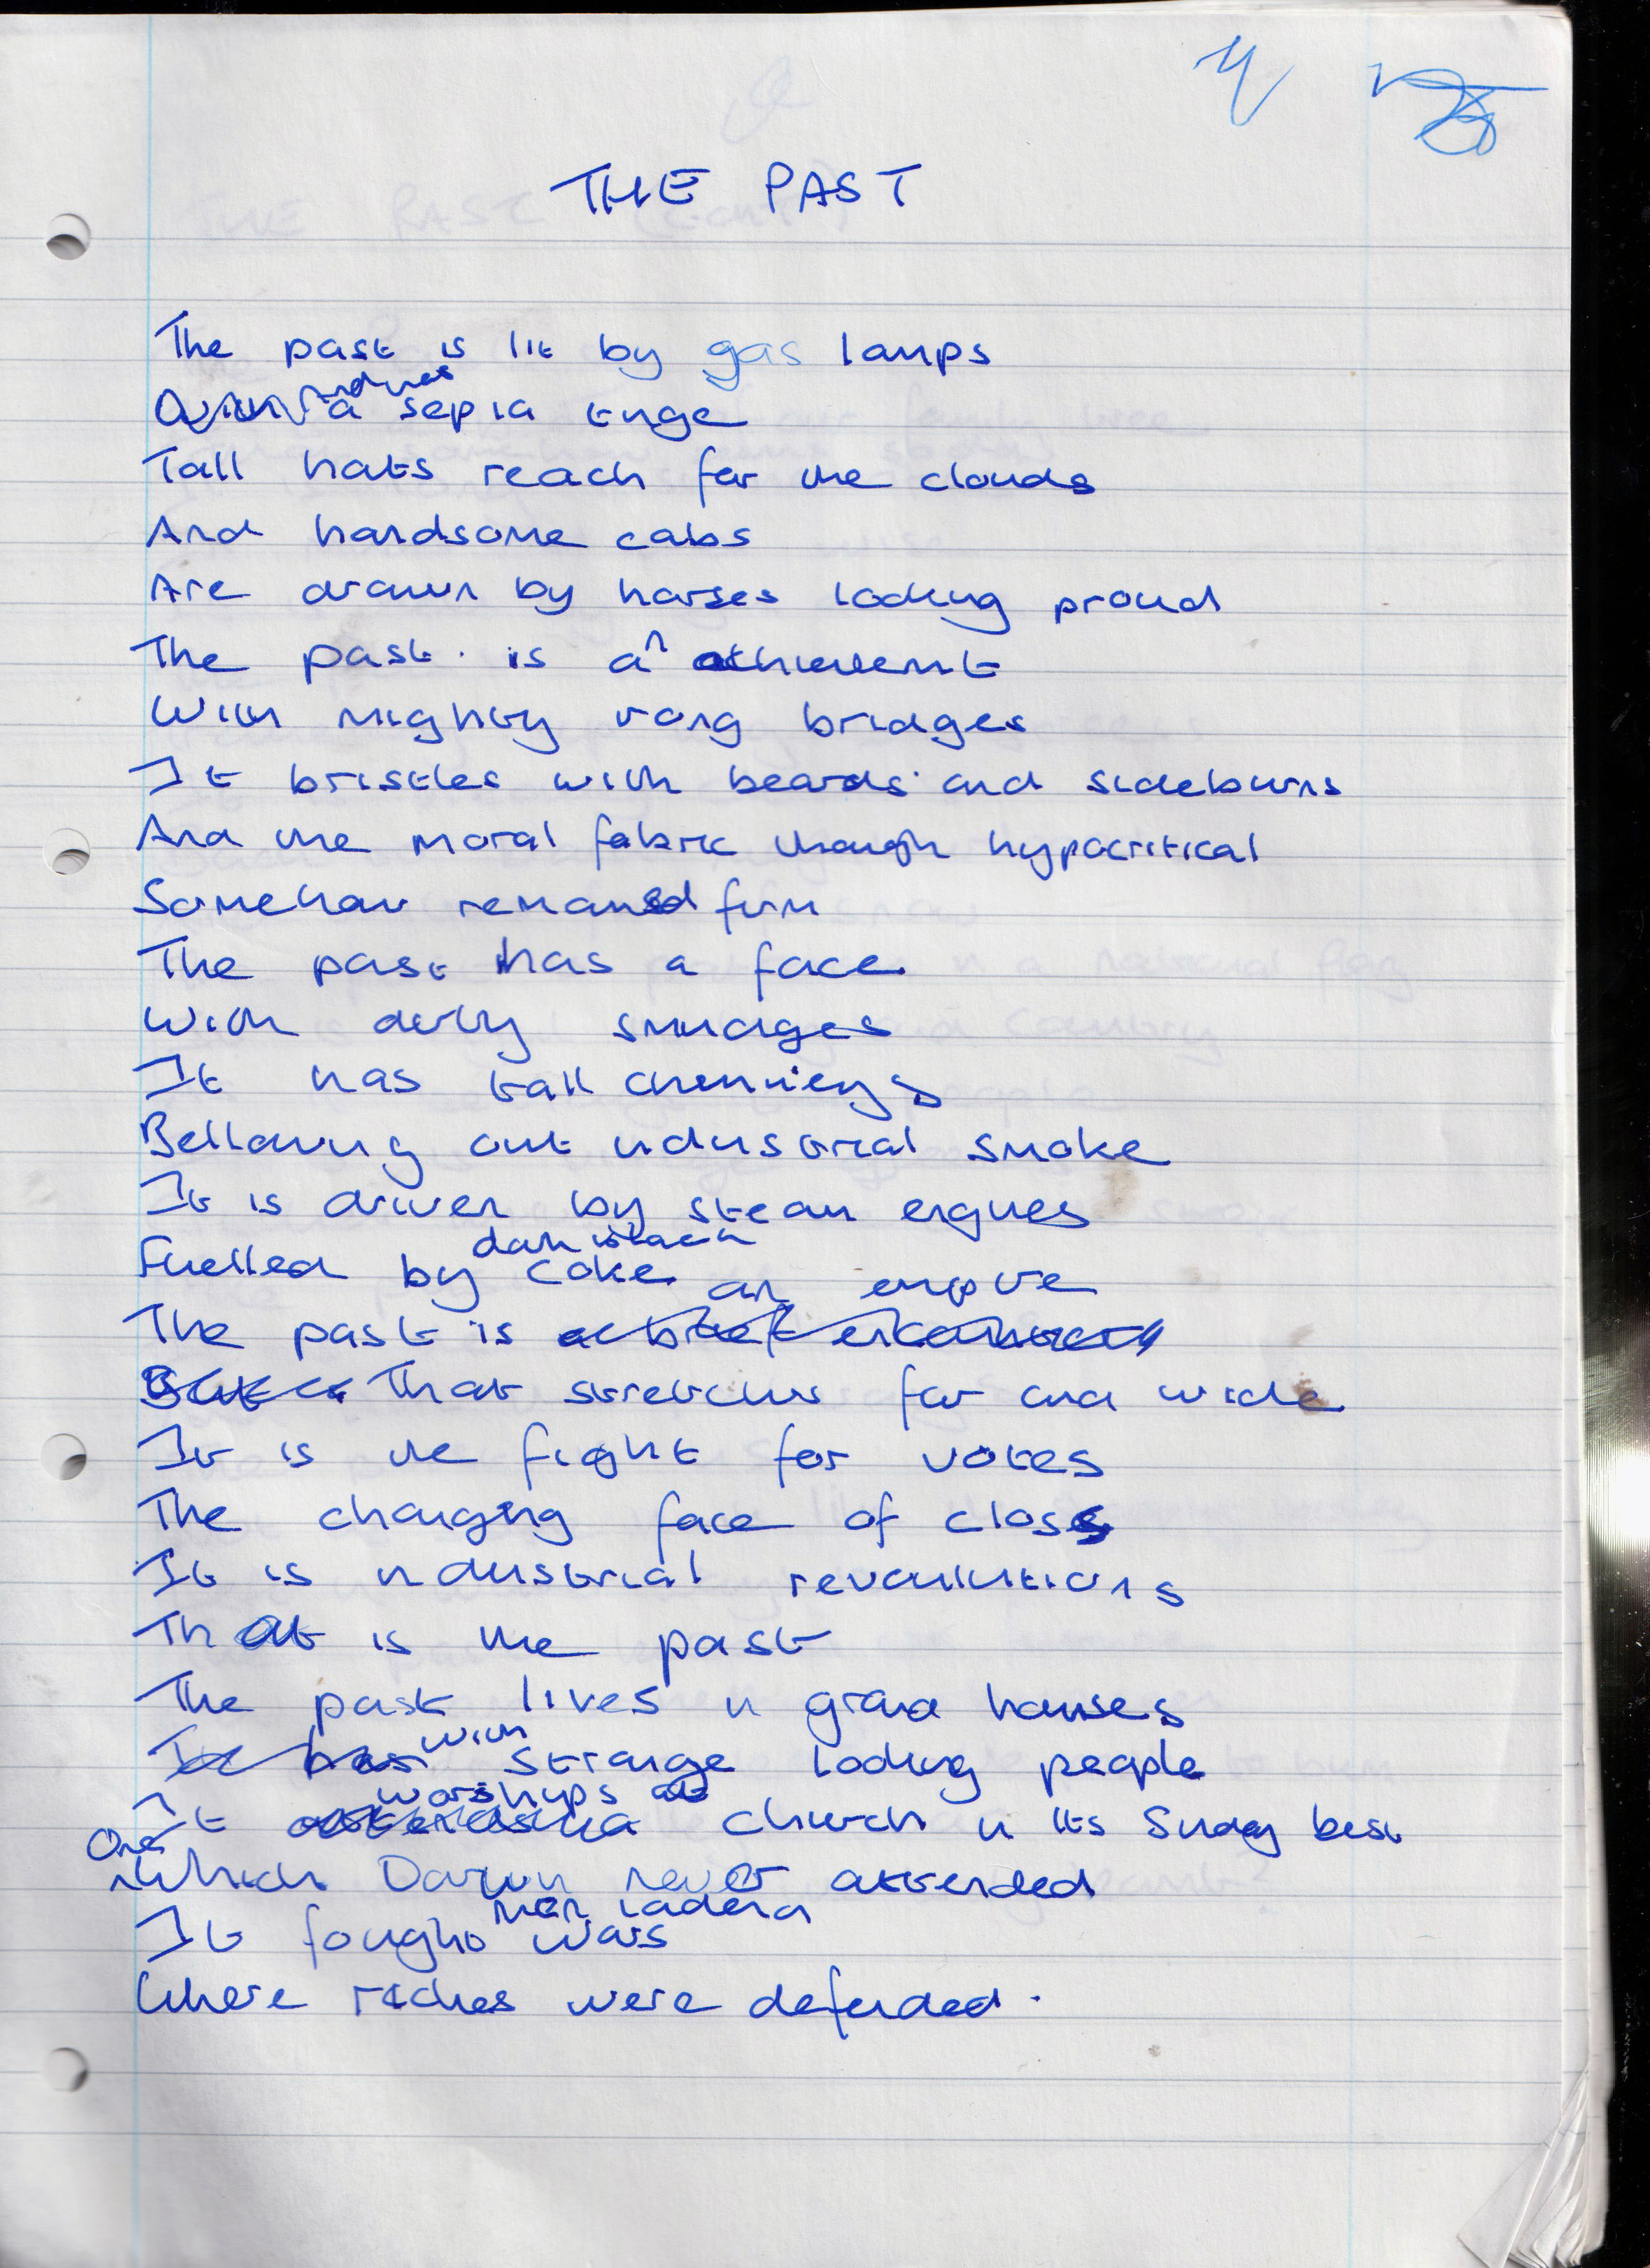 THE PAST
The past is lit by gas lamps
And has a sepia tinge
Tall hats reach for the clouds
And handsome cabs
Are drawn by horses looking proud
The past is an achievement
With mighty bridges
It bristles with beards and sideburns
And the moral fabric though hypocritical
Somehow remained firm
The past has a face
With dirty smudges
It has tall chimneys
Bellowing out industrial smoke
It is driven by steam engines
Fuelled by coke
The past is an empire
That stretches far and wide
It is the fight for votes
The changing face of class
It is industrial revolutions
That is the past
The past lives in grand houses
with strange looking people
It worships at church in its Sunday best
One which Darwin never attended
It fought wars
Where riches were defended.